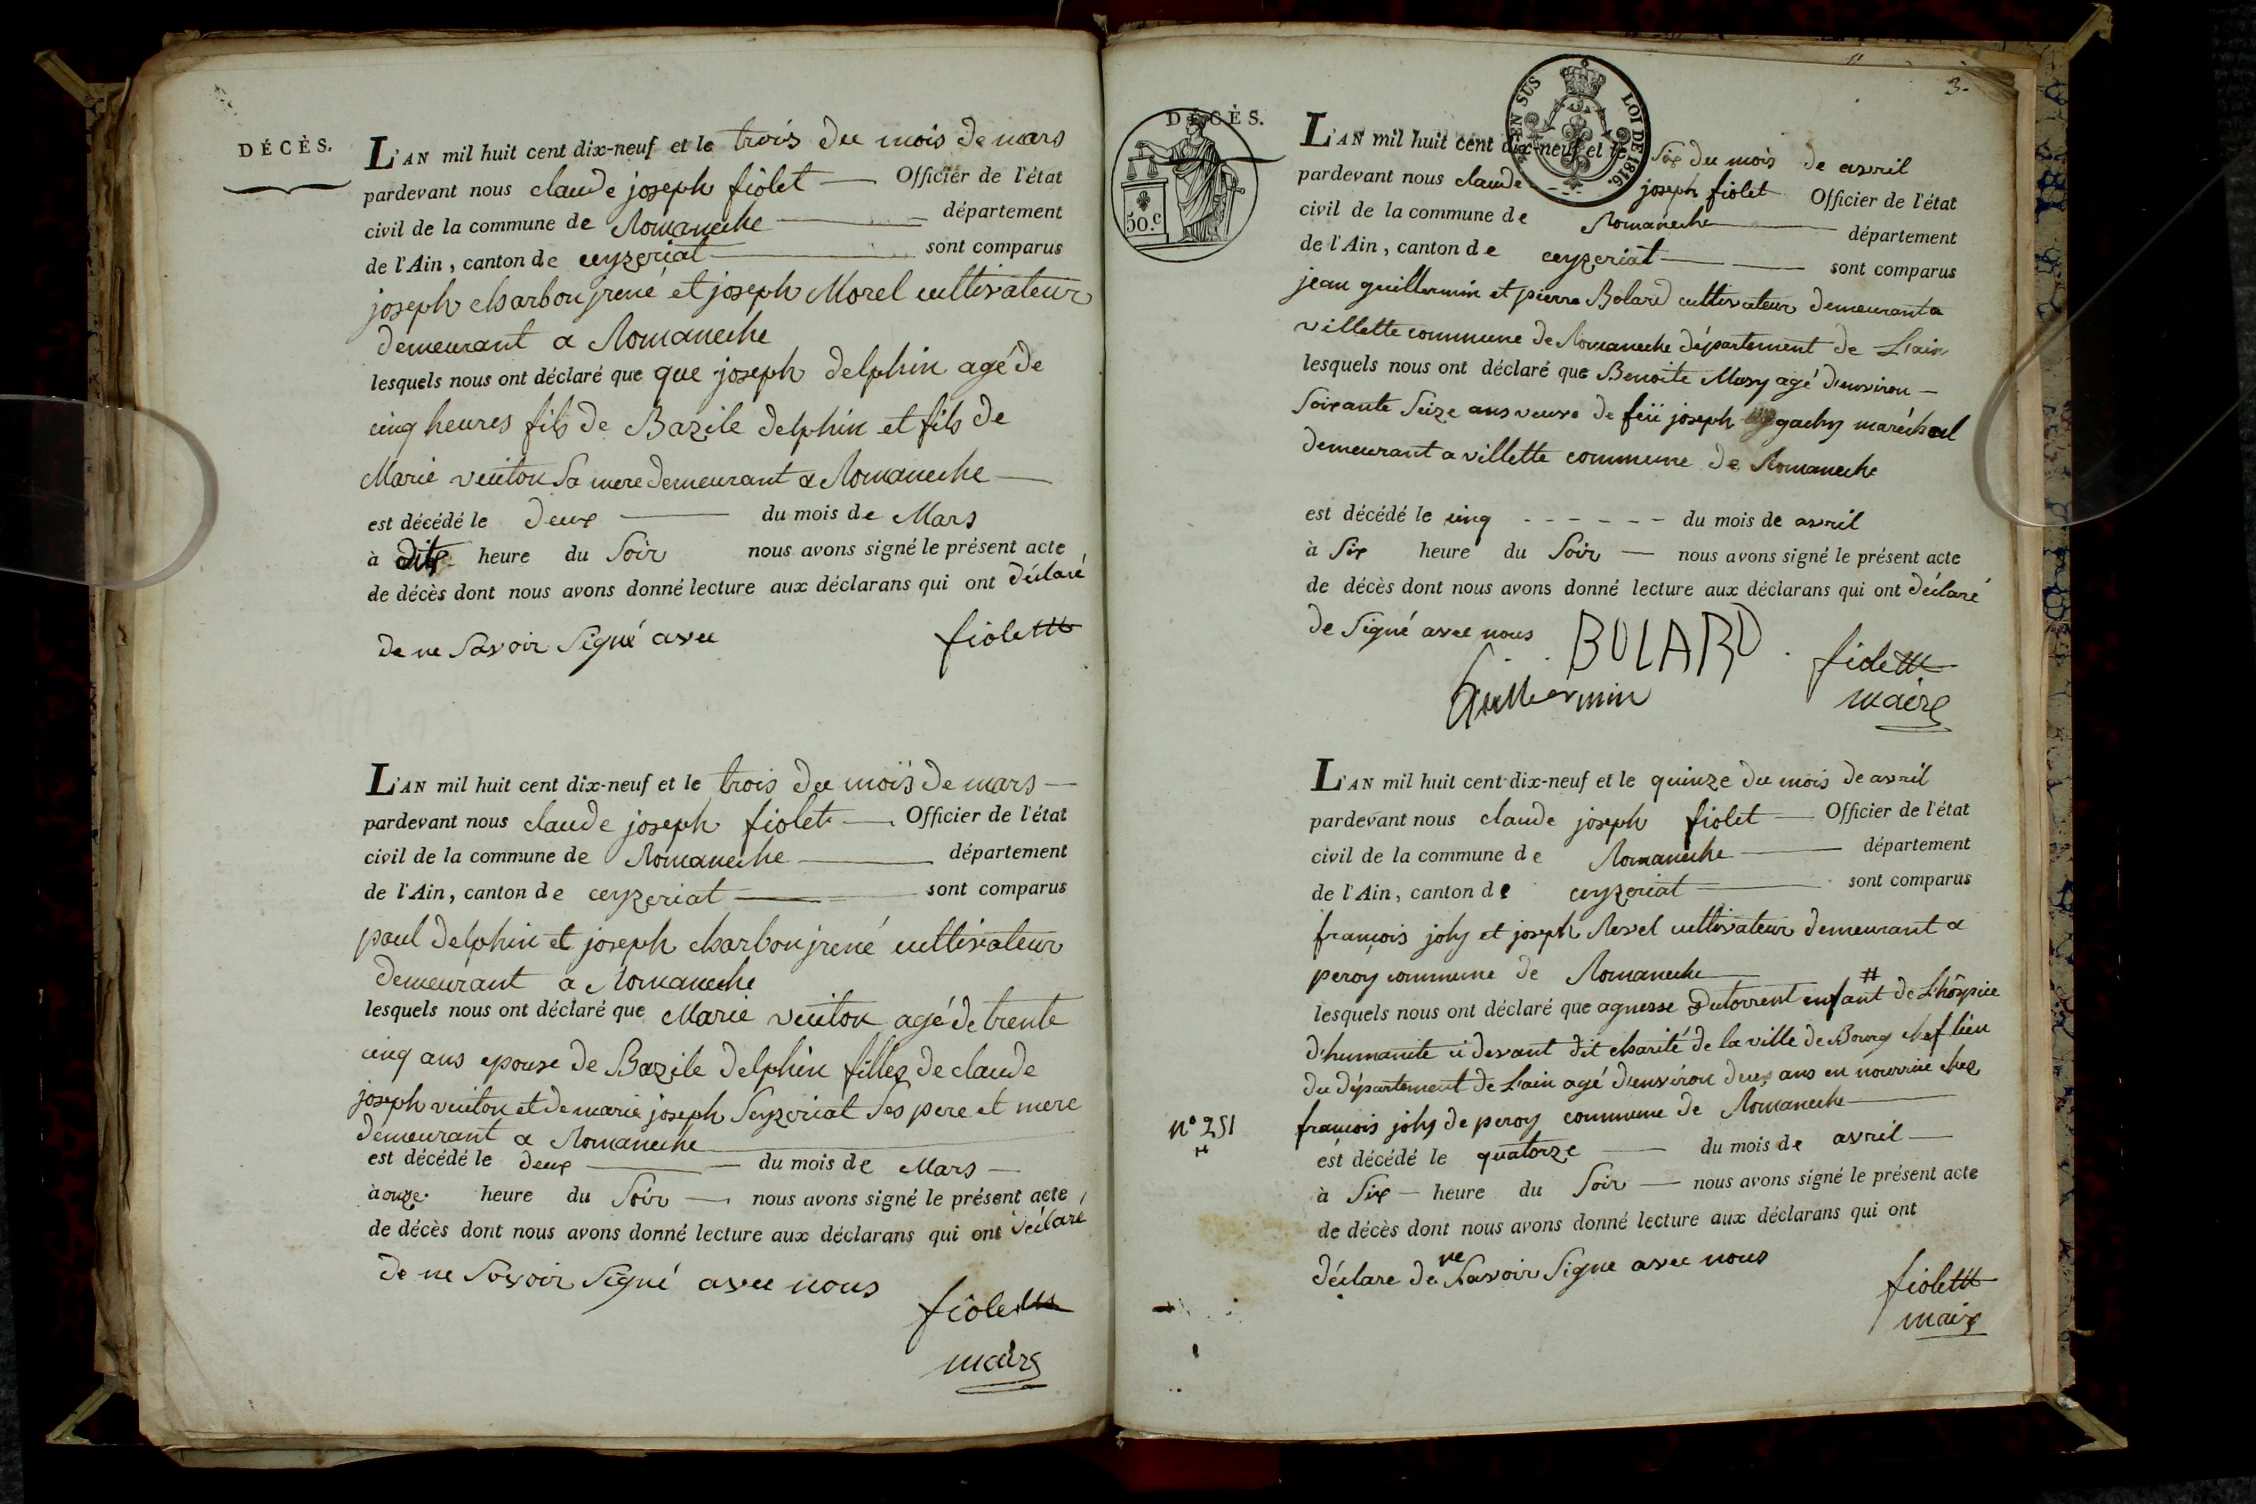 DÉCÈS.
L'AN mil huit cent dix-neuf et le trois du mois de mars
pardevant nous claude joseph fiolet Officier de l'état
civil de la commune de Romaneche département
de l'Ain, canton de ceyzeriat sont comparus
joseph charbonjrené et joseph Morel cultivateur
demeurant a Romaneche
lesquels nous ont déclaré que que joseph delphin agé de
cinq heures fils de Bazile delphin et fils de
Marie veuiton Sa mere demeurant a Romaneche
est décédé le deux du mois de Mars
à dix heure du Soir nous avons signé le présent acte
de décès dont nous avons donné lecture aux déclarans qui ont déclaré
de ne Savoir Signé avec
fiolet
L'AN mil huit cent dix-neuf et le trois du mois de mars
pardevant nous claude joseph fiolet Officier de l'état
civil de la commune de Romaneche département
de l'Ain, canton de ceyzeriat sont comparus
paul delphin et joseph charbonjrené cultivateur
demeurant a Romaneche
lesquels nous ont déclaré que Marie veuiton agé de trente
cinq ans epouse de Bazile delphin filles de claude
joseph veuiton et de marie joseph Seyzeriat Ses pere et mere
demeurant a Romaneche
est décédé le deux du mois de Mars
à onze heure du Soir nous avons signé le présent acte
de décès dont nous avons donné lecture aux déclarans qui ont déclaré
de ne Savoir Signé avec nous
fiolet
maire
3.
DÉCÈS.
50.c
EN SUS LOI DE 1816.
L'AN mil huit cent dix-neuf et le Six du mois de avril
pardevant nous claude joseph fiolet Officier de l'état
civil de la commune de Romaneche département
de l'Ain, canton de ceyzeriat sont comparus
jean guillermin et pierre Bolard cultivateur demeurant a
villette commune de Romaneche département de L'ain
lesquels nous ont déclaré que Benoite Mory agé d'environ
Soixante Seize ans veuve de feü joseph gachy maréchal
demeurant a villette commune de Romaneche
est décédé le cinq du mois de avril
à Six heure du Soir nous avons signé le présent acte
de décès dont nous avons donné lecture aux déclarans qui ont déclaré
de Signé avec nous BOLARD
fiolet
Guillermin maire
L'AN mil huit cent dix-neuf et le quinze du mois de avril
pardevant nous claude joseph fiolet Officier de l'état
civil de la commune de Romaneche département
de l'Ain, canton de ceyzeriat sont comparus
françois joly et joseph Revel cultivateur demeurant a
peroy commune de Romaneche #
lesquels nous ont déclaré que agnesse Dutorrent enfant de L'hôspice
d'humanite ci devant dit charité de la ville de Bourg chef lieu
du département de L'ain agé d'environ deux ans en nourrice chez
françois joly de peroy commune de Romaneche
n° 251
est décédé le quatorze du mois de avril
à Six heure du Soir nous avons signé le présent acte
de décès dont nous avons donné lecture aux déclarans qui ont
déclare de ne Savoir Signe avec nous
fiolet
maire